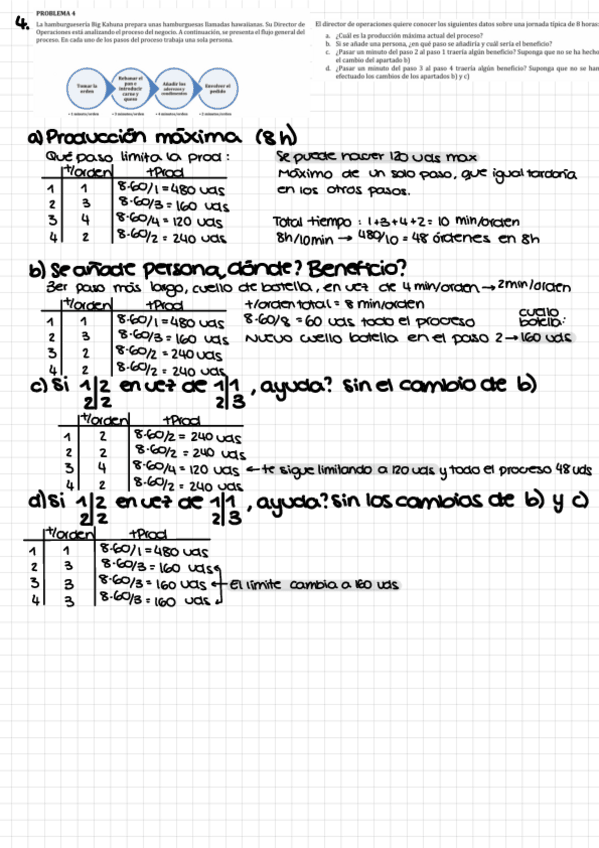 4.
PROBLEMA 4
La hamburguesería Big Kahuna prepara unas hamburguesas llamadas hawaianas. Su Director de
Operaciones está analizando el proceso del negocio. A continuación, se presenta el flujo general del
proceso. En cada uno de los pasos del proceso trabaja una sola persona.
Tomar la
orden
Rebanar el
pan e
introducir
carne y
queso
Añadir los
aderezos y
condimentos
Envolver el
pedido
1 minuto/orden
3 minutos/orden
4 minutos/orden
2 minutos/orden
El director de operaciones quiere conocer los siguientes datos sobre una jornada típica de 8 horas:
a. ¿Cuál es la producción máxima actual del proceso?
b. Si se añade una persona, ¿en qué paso se añadiría y cuál sería el beneficio?
c. ¿Pasar un minuto del paso 2 al paso 1 traería algún beneficio? Suponga que no se ha hecho
el cambio del apartado b)
d. ¿Pasar un minuto del paso 3 al paso 4 traería algún beneficio? Suponga que no se han
efectuado los cambios de los apartados b) y c)
a) Producción máxima (8h)
Qué paso limita la prod:
t/orden tProd
1 1 8·60/1 = 480 uds
2 3 8·60/3 = 160 uds
3 4 8·60/4 = 120 uds
4 2 8·60/2 = 240 uds
Se puede hacer 120 uds max
Máximo de un solo paso, que igual tardaría
en los otros pasos.
Total tiempo : 1+3+4+2 = 10 min/orden
8h/10min → 480/10 = 48 órdenes en 8h
b) Se añade persona, dónde? Beneficio?
3er paso más largo, cuello de botella, en vez de 4 min/orden → 2min/orden
t/orden tProd
1 1 8·60/1 = 480 uds
2 3 8·60/3 = 160 uds
3 2 8·60/2 = 240 uds
4 2 8·60/2 = 240 uds
t/orden total = 8 min/orden
8·60/8 = 60 uds todo el proceso
Nuevo cuello botella en el paso 2 → 160 uds
cuello
botella:
c) Si 1|2 en vez de 1|1 , ayuda? Sin el cambio de b)
2|2 2|3
t/orden tProd
1 2 8·60/2 = 240 uds
2 2 8·60/2 = 240 uds
3 4 8·60/4 = 120 uds ← te sigue limitando a 120 uds y todo el proceso 48 uds
4 2 8·60/2 = 240 uds
d) Si 1|2 en vez de 1|1 , ayuda? Sin los cambios de b) y c)
2|2 2|3
t/orden tProd
1 1 8·60/1 = 480 uds
2 3 8·60/3 = 160 uds
3 3 8·60/3 = 160 uds ← El límite cambia a 160 uds
4 3 8·60/3 = 160 uds